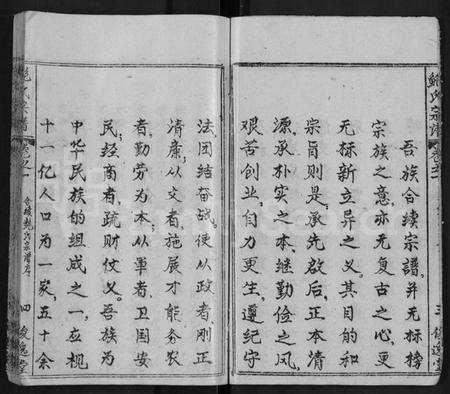 鲍氏宗谱
卷之一
吾族合续宗谱,并无标榜
宗族之意,亦无复古之心,更
无标新立异之义。其目的和
宗旨则是:承先啟后,正本清
源,承朴实之本,继勤俭之风,
艰苦创业,自力更生,遵纪守
法,团结奋战。使从政者,刚正
清廉;从文者,施展才能;务农
者,勤劳为本;从军者,卫国安
民;经商者,疏财仗义。吾族为
中华民族的组成之一,应视
十一亿人口为一家,五十余
卷之一
合续鲍氏宗谱序
四